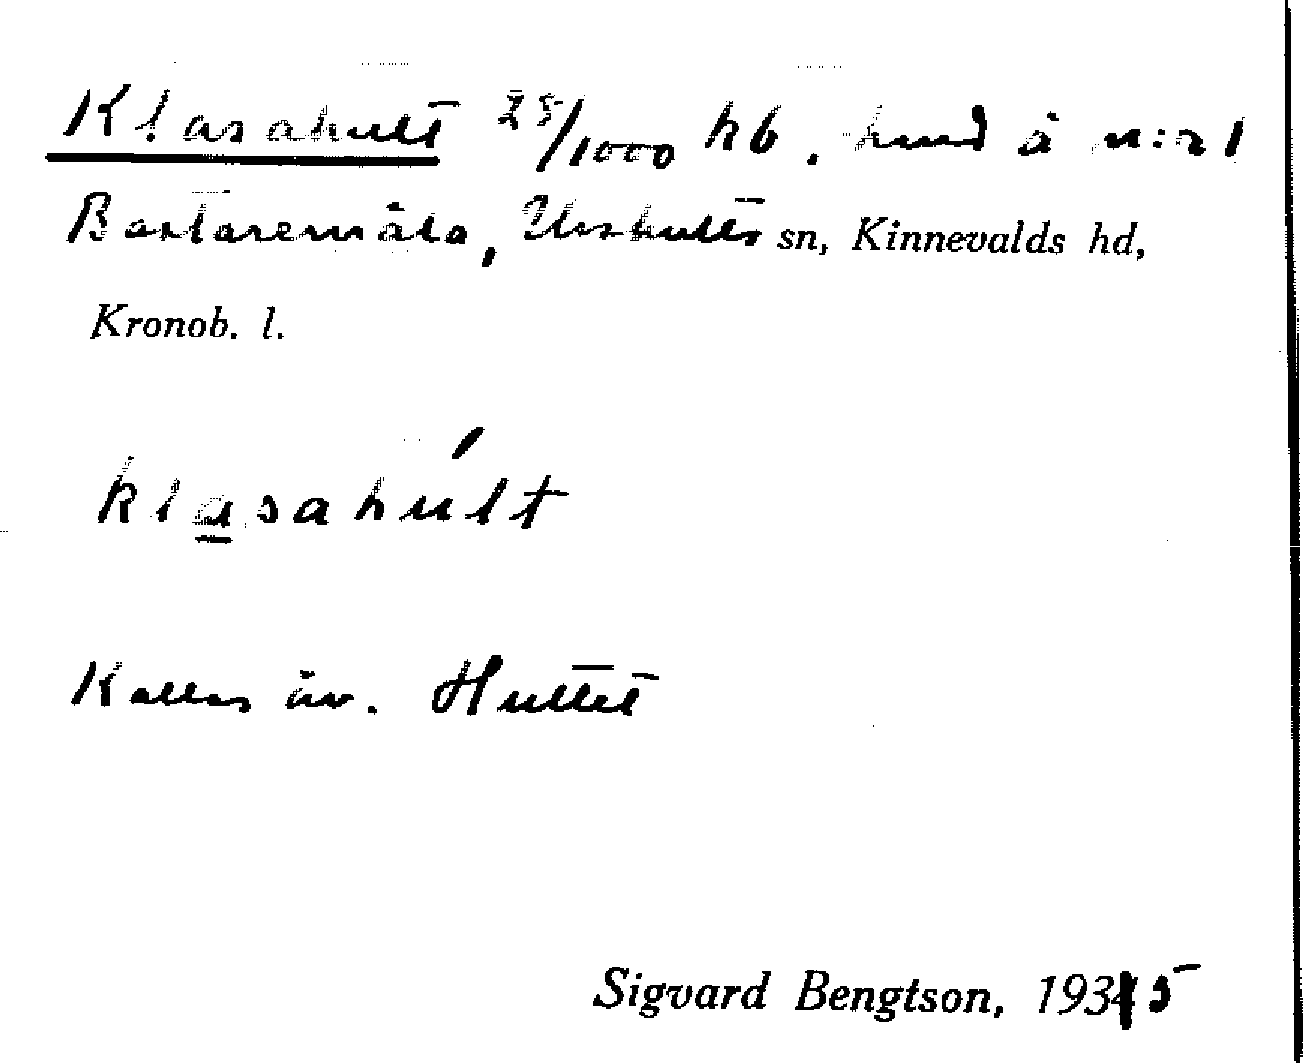 Klasahult 25/1000 hb. hmd å n:r 1
Bastaremåla, Urshults sn, Kinnevalds hd,
Kronob. l.
klasahúlt
Kallas äv. Hultet
Sigvard Bengtson, 1935